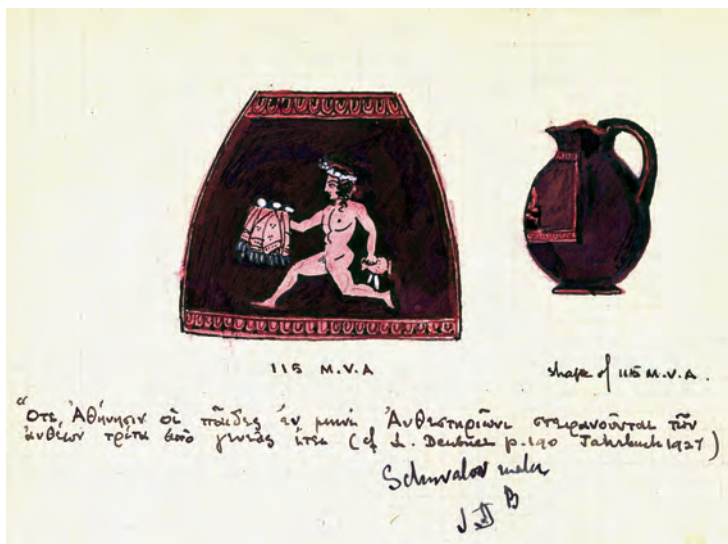 115 M.V.A
shape of 115 M.V.A.
Ὅτε Ἀθήνησιν οἱ παῖδες ἐν μηνὶ Ἀνθεστηριῶνι στεφανοῦνται τῶν
ἀνθέων τρίτῳ ἀπὸ γενεᾶς ἔτει (cf L. Deubner p.190 Jahrbuch 1927)
Schuvalov maler
J D B